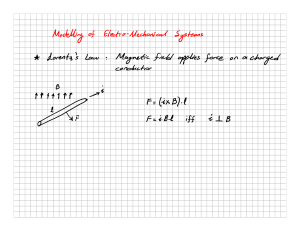 Modelling of Electro-Mechanical Systems
* Lorentz's Law : Magnetic field applies force on a charged
conductor
B
i
l
F
F = (i×B).l
F = iBl iff i ⊥ B